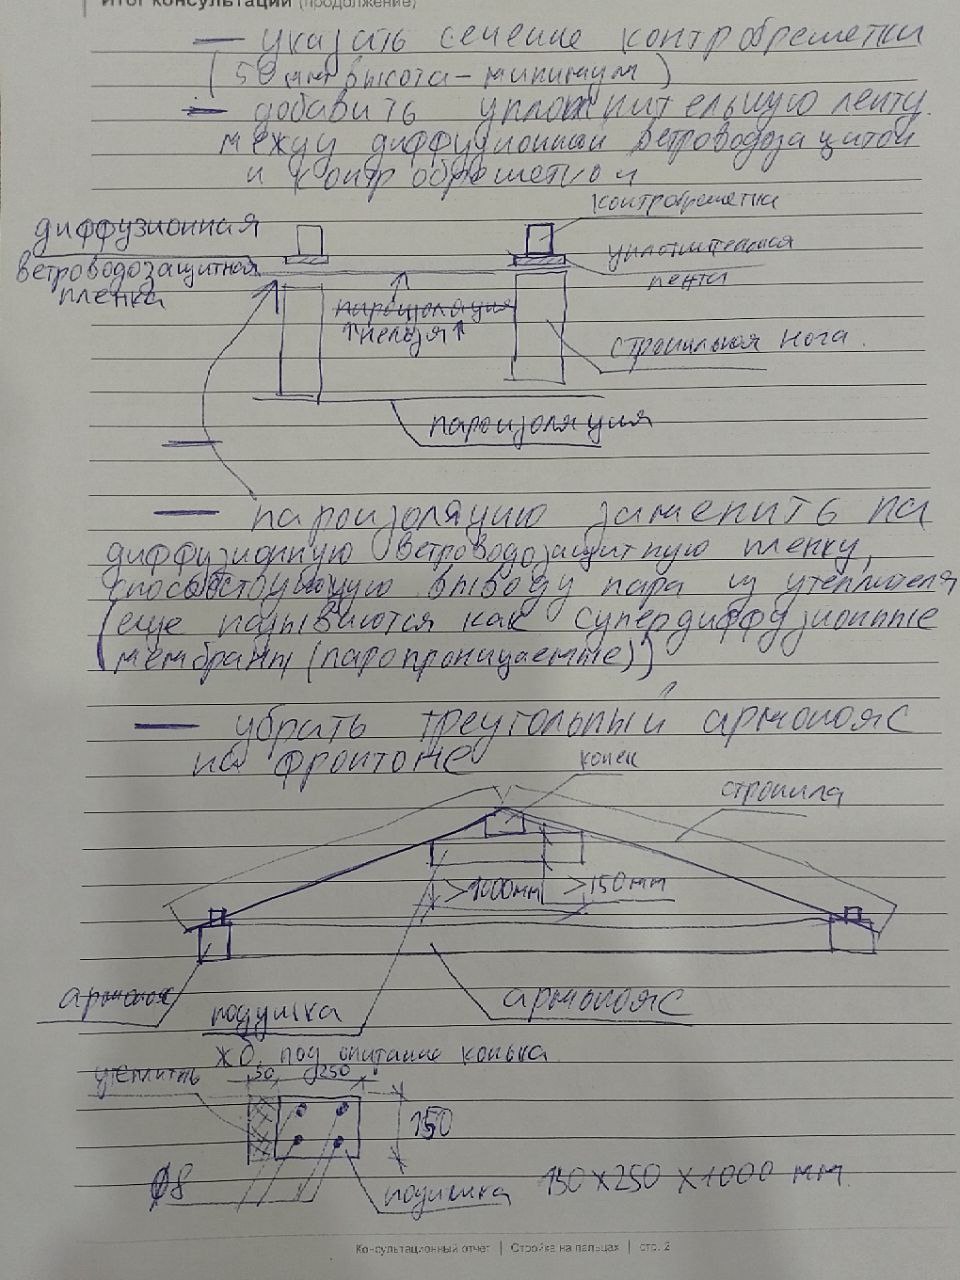 Итог консультации (продолжение)
— указать сечение контробрешетки
(50 мм высота - минимум)
— добавить уплотнительную ленту
между диффузионной ветроводозащитой
и контробрешеткой
контробрешетка
диффузионная
уплотнительная
ветроводозащитная
лента
пленка
пароизоляция
↑нельзя↑
стропильная нога.
пароизоляция
— пароизоляцию заменить на
диффузионную ветроводозащитную пленку,
способствующую выводу пара из утеплителя
(еще называются как супердиффузионные
мембраны (паропроницаемые))
— убрать треугольный армопояс
на фронтоне
конек
стропила
>1000мм >150мм
армопояс
армопояс
подушка
ЖБ под опирание конька
утеплить 50 250
150
Ø8
подушка 150 х 250 х 1000 мм.
Консультационный отчет | Стройка на пальцах | стр. 2